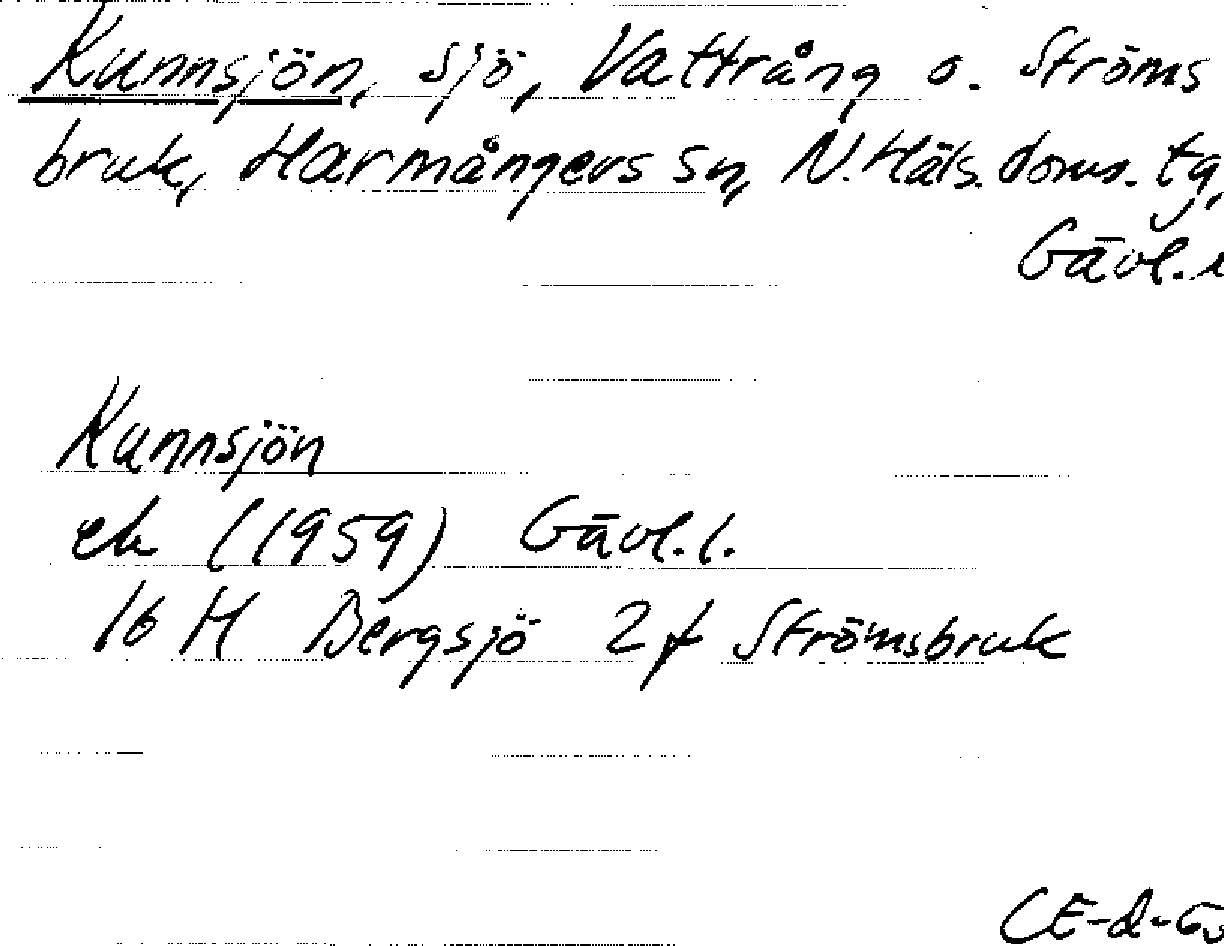 Kunnsjön, sjö, Vattrång o. Ströms
bruk, Harmångers sn, N. Häls. doms. tg,
Gävl.
Kunnsjön
ek (1959) Gävl. l.
16 H Bergsjö 2f Strömsbruk
CE-d-